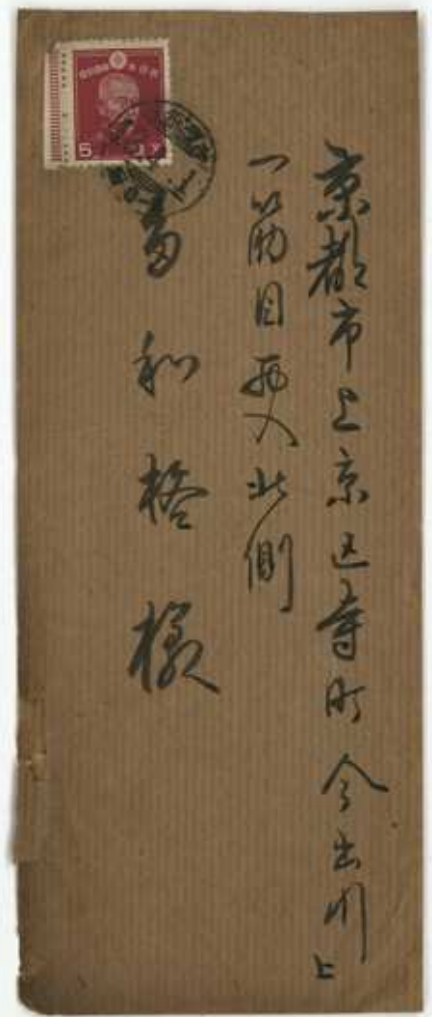 京都市上京区寺町今出川上
一筋目西入北側
和 様
5